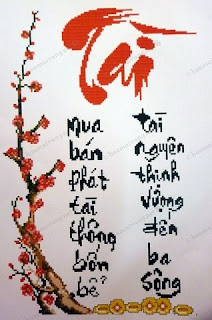 Tài
mua
bán
phát
tài
thông
bốn
bể
tài
nguyên
thịnh
vượng
đến
ba
sông